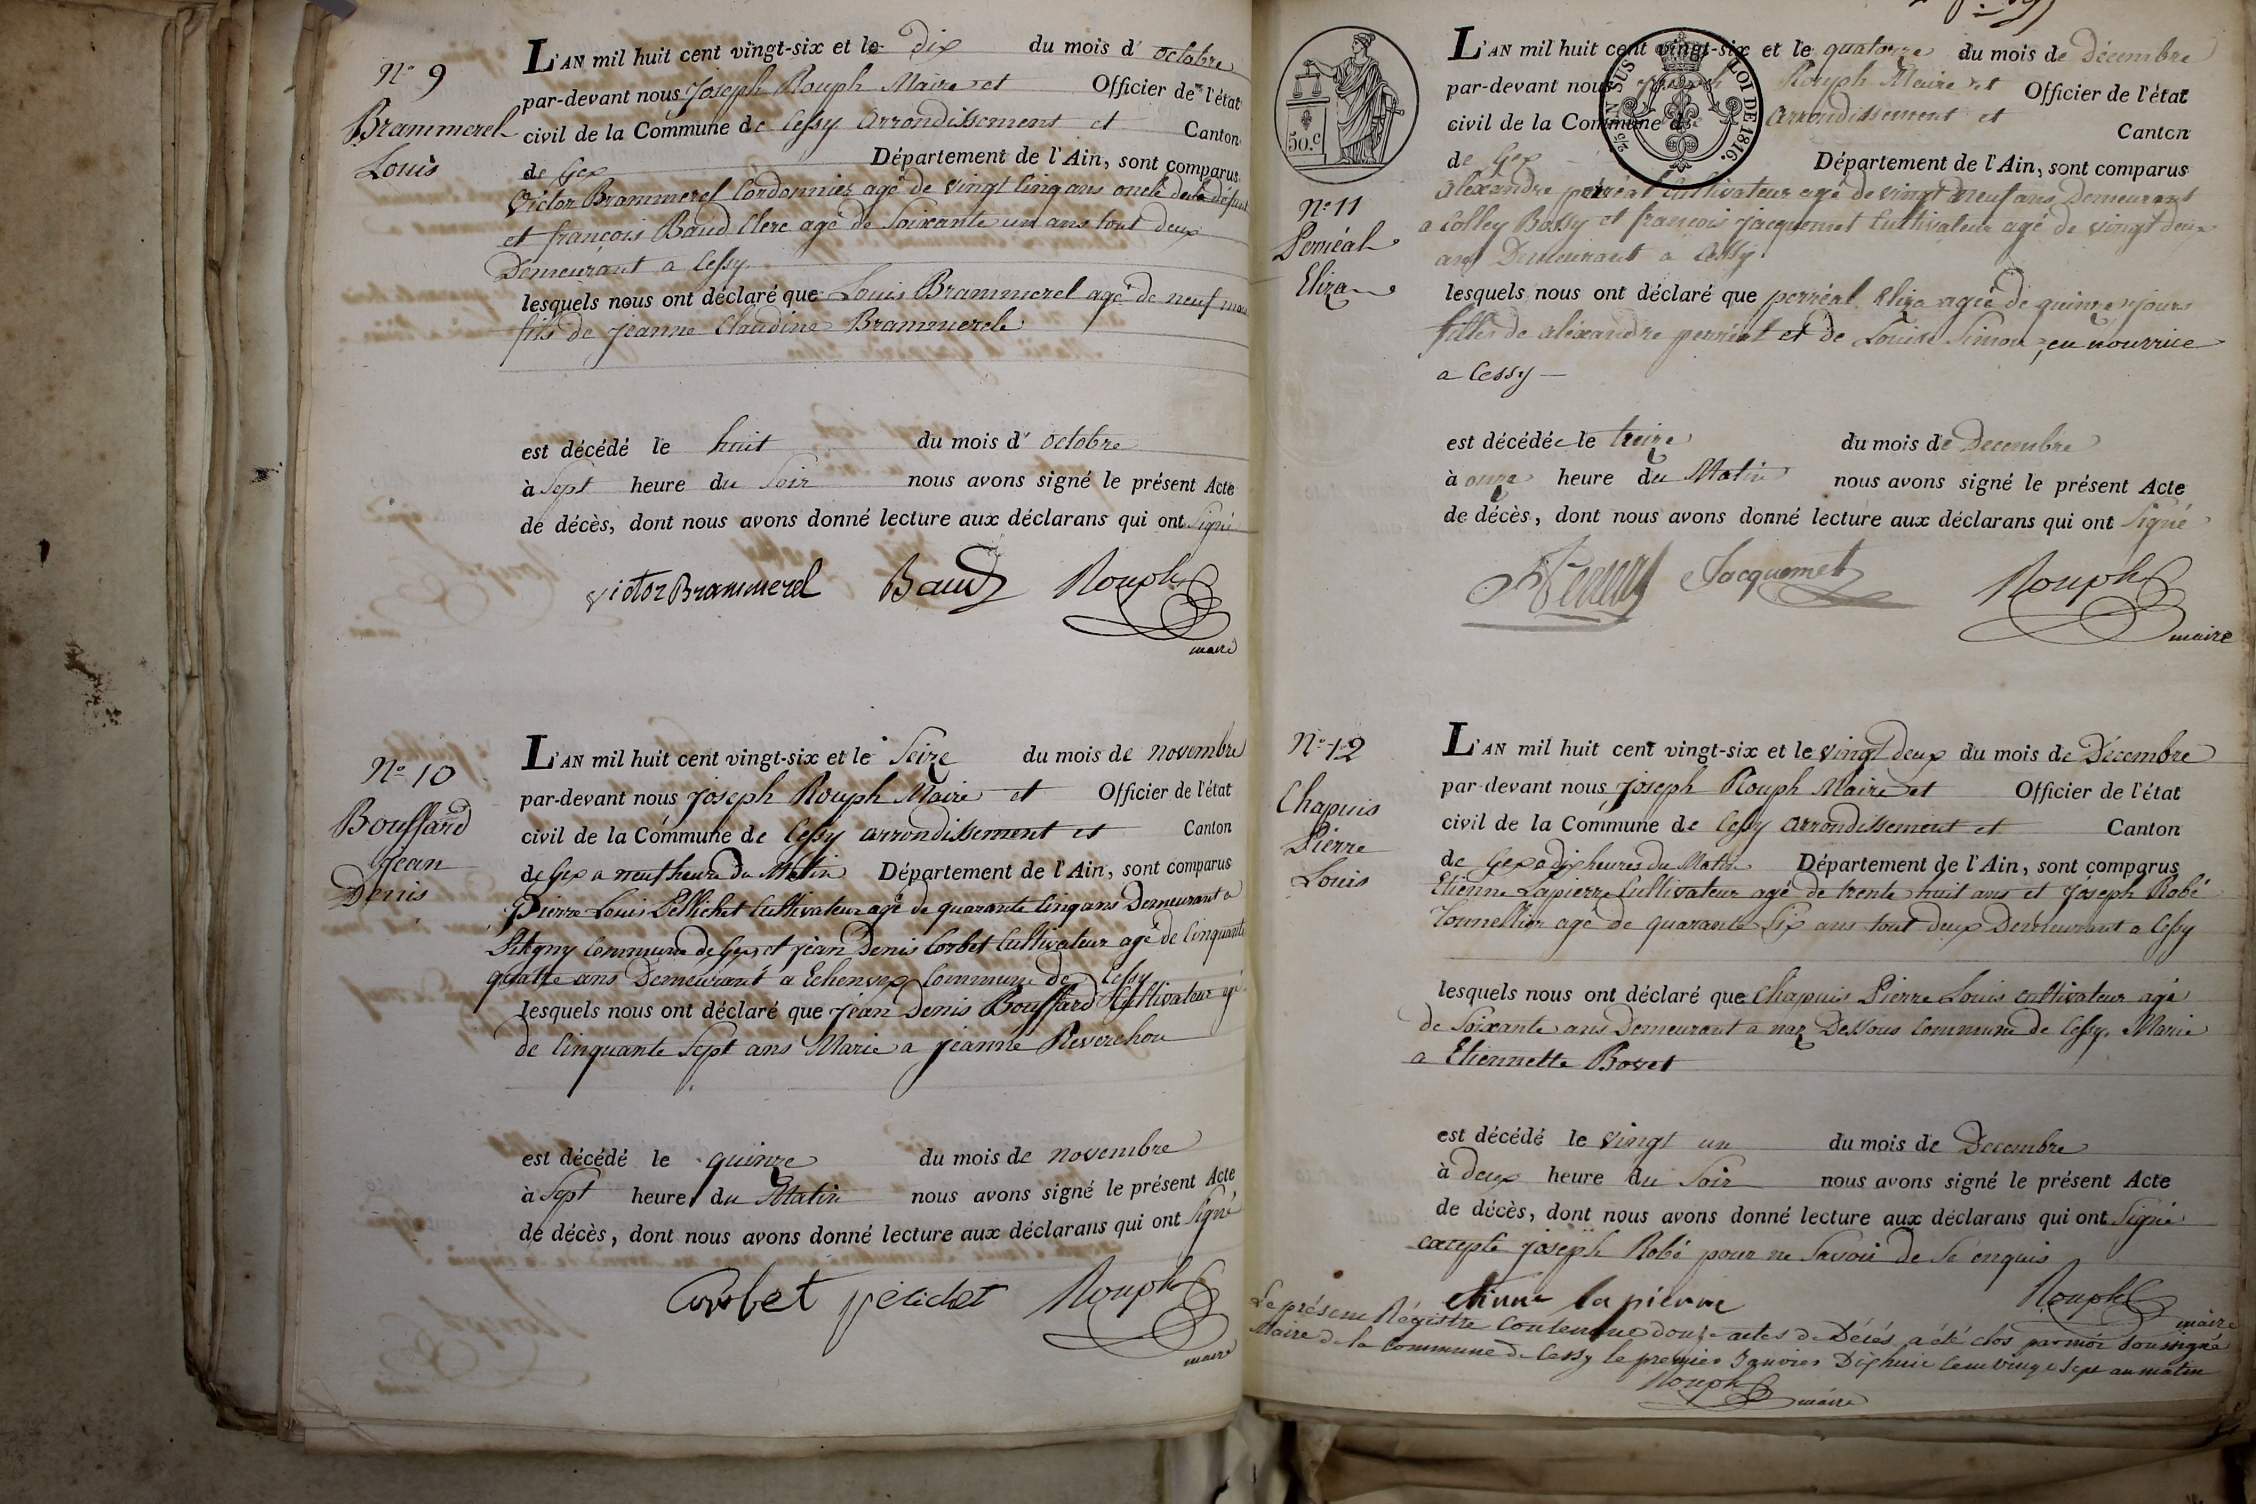 N° 9
Brammerel
Louis
L'AN mil huit cent vingt-six et le dix du mois d' octobre
par-devant nous Joseph Rouph Maire et Officier de l'état
civil de la Commune de Cessy arrondissement et Canton
de Gex Département de l'Ain, sont comparus
Victor Brammerel Cordonnier agé de vingt Cinq ans oncle de la défunt
et francois Baud Clerc agé de Soixante un ans tout deux
Demeurant a Cessy
lesquels nous ont déclaré que Louis Brammerel agé de neuf mois
fils de jeanne Claudine Brammerele
est décédé le huit du mois d' octobre
à Sept heure du Soir nous avons signé le présent Acte
de décès, dont nous avons donné lecture aux déclarans qui ont Signé
victor Brammerel Baud Rouph
maire
N° 10
Bouffard
Jean
Denis
L'AN mil huit cent vingt-six et le Seize du mois de novembre
par-devant nous Joseph Rouph Maire et Officier de l'état
civil de la Commune de Cessy arrondissement et Canton
de Gex a neuf heure du Matin Département de l'Ain, sont comparus
Pierre Louis Pellichet Cultivateur agé de quarante Cinq ans Demeurant a
Pitegny Commune de Gex et jean Denis Corbet Cultivateur agé de Cinquante
quatre ans Demeurant a Echenvex Commune de Cessy
lesquels nous ont déclaré que jean Denis Bouffard Cultivateur agé
de Cinquante Sept ans Marie a jeanne Reverchon
est décédé le quinze du mois de novembre
à Sept heure du Matin nous avons signé le présent Acte
de décès, dont nous avons donné lecture aux déclarans qui ont Signé
Corbet pelichet Rouph
maire
50.c
SUS
LOI DE 1816.
N° 11
Perréal
Eliza
L'AN mil huit cent vingt-six et le quatorze du mois de Décembre
par-devant nous Joseph Rouph Maire et Officier de l'état
civil de la Commune de arrondissement et Canton
de Gex Département de l'Ain, sont comparus
alexandre perréal Cultivateur agé de vingt neuf ans Demeurant
a Colley Bossy et francois jacquemet Cultivateur agé de vingt deux
ans Demeurant a Cessy
lesquels nous ont déclaré que perréal Eliza agée de quinze jours
filles de alexandre perréal et de Louise Simon, en nourrice
a Cessy
est décédée le treize du mois de Decembre
à onze heure du Matin nous avons signé le présent Acte
de décès, dont nous avons donné lecture aux déclarans qui ont Signé
Jacquemet Rouph
maire
N° 12
Chapuis
Pierre
Louis
L'AN mil huit cent vingt-six et le vingt deux du mois de Décembre
par-devant nous Joseph Rouph Maire et Officier de l'état
civil de la Commune de Cessy arrondissement et Canton
de Gex a dix heures du Matin Département de l'Ain, sont comparus
Etienne Lapierre Cultivateur agé de trente huit ans et Joseph Robé
Tonnellier agé de quarante Six ans tout deux Demeurant a Cessy
lesquels nous ont déclaré que Chapuis Pierre Louis cultivateur agé
de Soixante ans Demeurant a naz Dessous Commune de Cessy, Marie
a Etiennette Bovet
est décédé le vingt un du mois de Decembre
à deux heure du Soir nous avons signé le présent Acte
de décès, dont nous avons donné lecture aux déclarans qui ont Signé
excepte Joseph Robé pour ne Savoir de Sé enquis
etienne lapierre Rouph
maire
Le présent Régistre Contenant douze actes de Décés, a été clos par moi Soussigné
Maire de la Commune de Cessy le premier Janvier Dixhuit Cent vingt Sept au matin
Rouph
maire